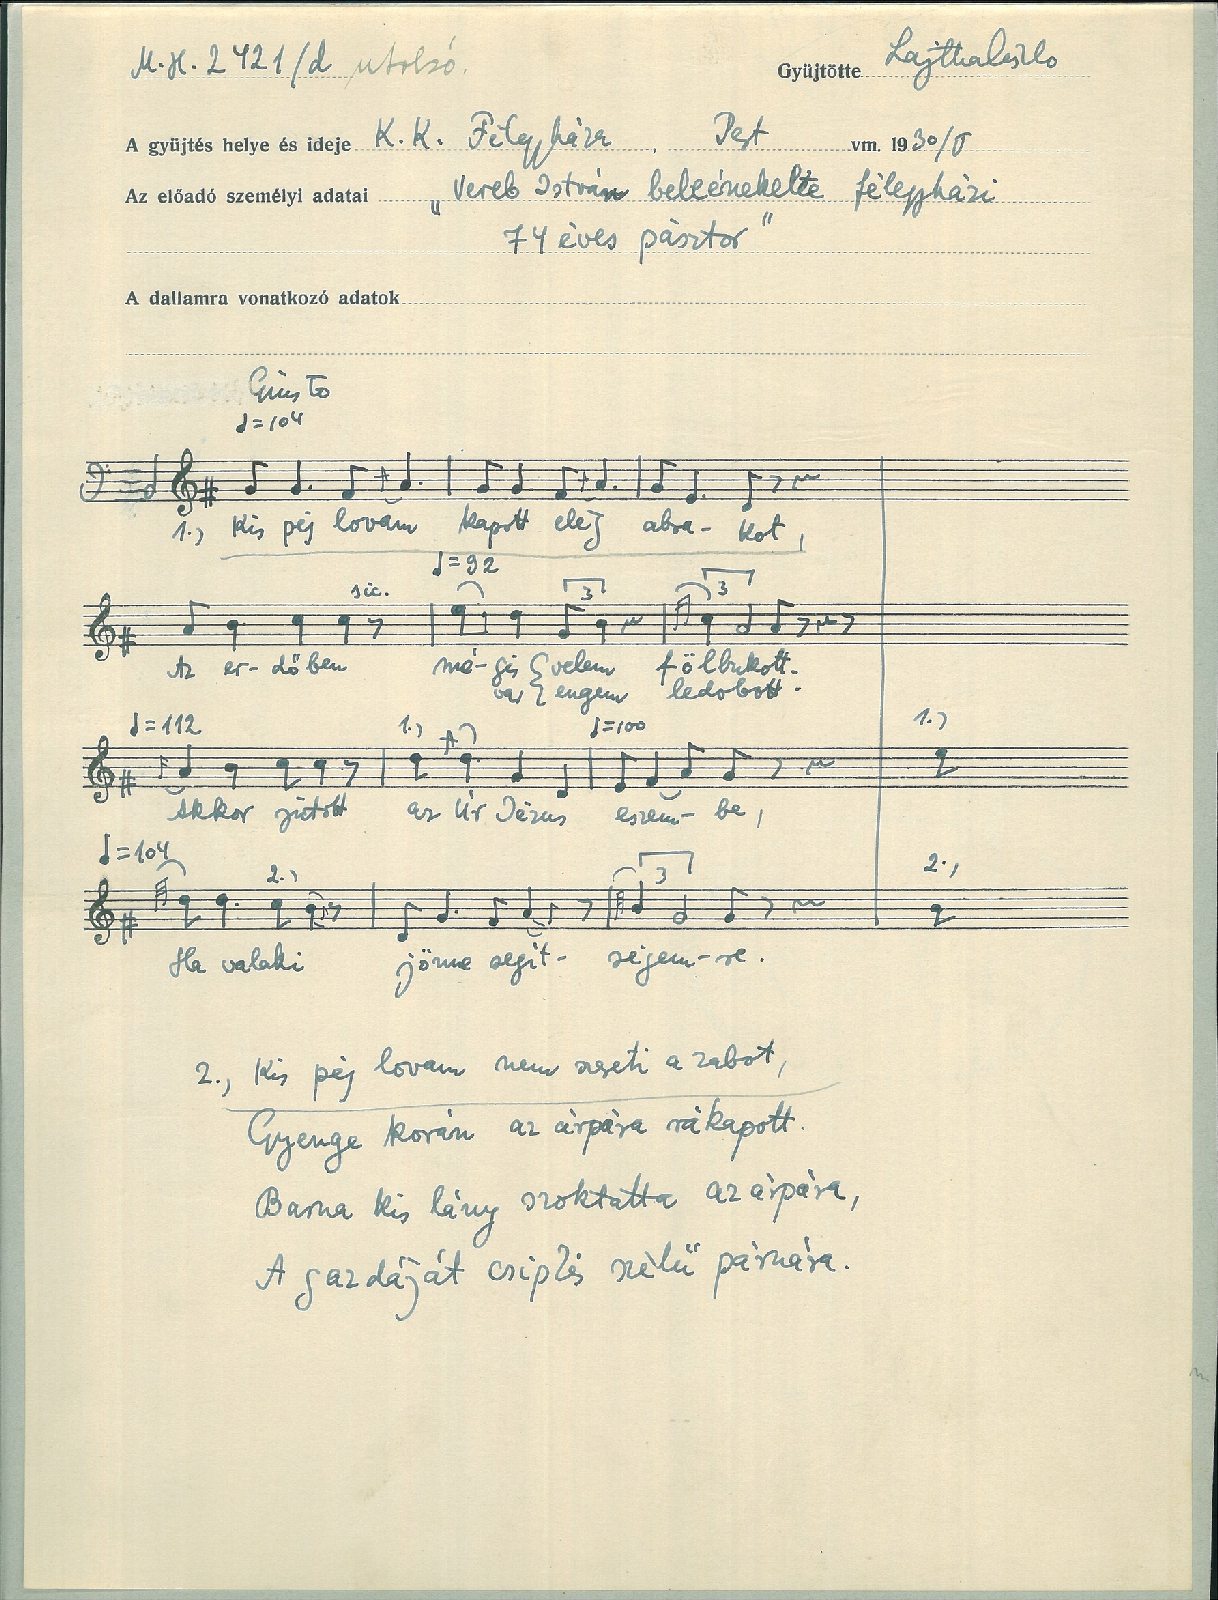 M.H. 2421/d utolsó.
Gyüjtötte Lajtha László
A gyüjtés helye és ideje K.K. Félegyháza, Pest vm. 1930/V
Az előadó személyi adatai „Vereb István beleénekelte félegyházi
74 éves pásztor"
A dallamra vonatkozó adatok
Giusto
♩=104
1., Kis péj lovam kapott elej abra- kot,
♩=92
sic. 3 3
Az er- dőben mé- gis velem fölbukott.
engem ledobott.
♩=112 1., ♩=100 1.,
Akkor jutott az Úr Jézus eszem- be,
♩=104
2., 3 2.,
Ha valaki jönne segít- ségem-re.
2., Kis péj lovam nem szereti a zabot,
Gyenge korán az árpára rákapott.
Barna kis lány szoktatta az árpára,
A gazdáját csiplés szélű párnára.